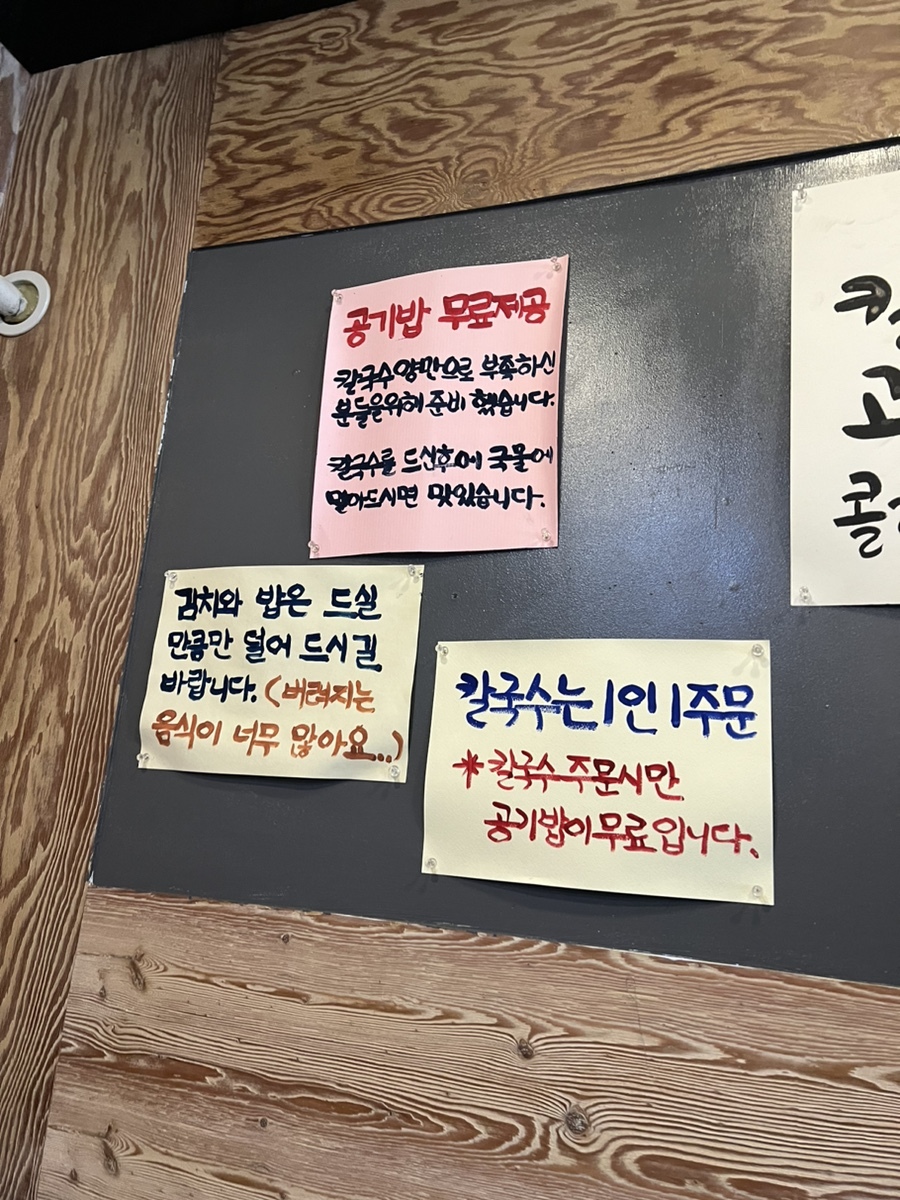 공기밥 무료제공
칼국수양만으로 부족하신
분들을위해 준비 했습니다.
칼국수를 드신후에 국물에
말아드시면 맛있습니다.
김치와 밥은 드실
만큼만 덜어 드시길
바랍니다. (버려지는
음식이 너무 많아요...)
칼국수는 1인 1주문
* 칼국수 주문시만
공기밥이 무료입니다.